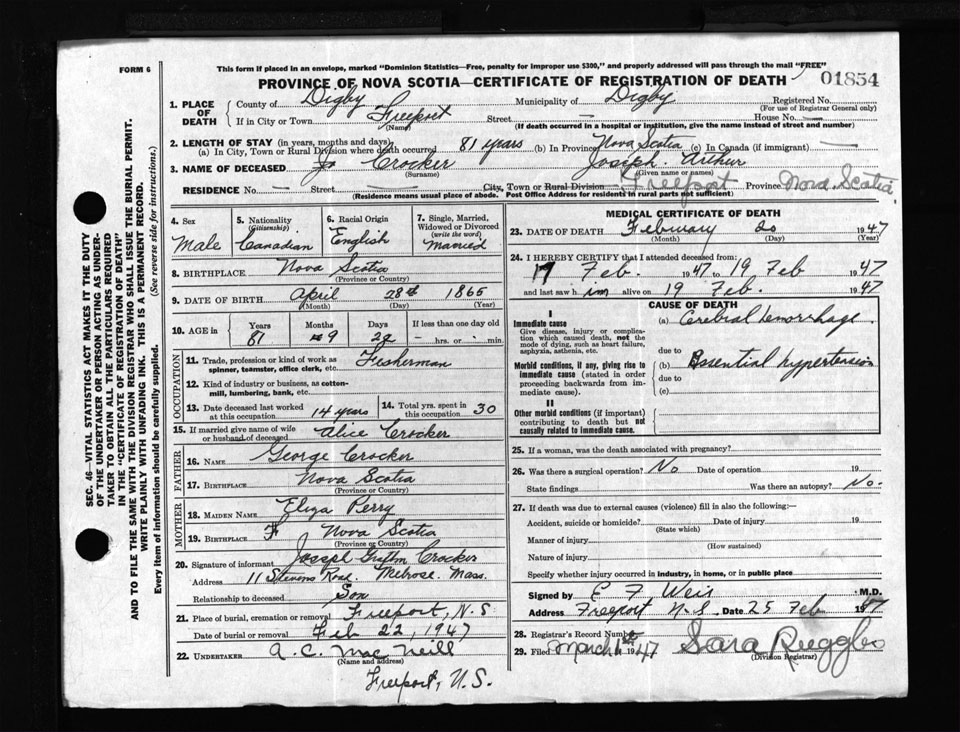 FORM 6
This form if placed in an envelope, marked "Dominion Statistics—Free, penalty for improper use $300," and properly addressed will pass through the mail "FREE"
PROVINCE OF NOVA SCOTIA—CERTIFICATE OF REGISTRATION OF DEATH
01854
SEC. 46—VITAL STATISTICS ACT MAKES IT THE DUTY
OF THE UNDERTAKER OR PERSON ACTING AS UNDER-
TAKER TO OBTAIN ALL THE PARTICULARS REQUIRED
IN THE "CERTIFICATE OF REGISTRATION OF DEATH"
AND TO FILE THE SAME WITH THE DIVISION REGISTRAR WHO SHALL ISSUE THE BURIAL PERMIT.
WRITE PLAINLY WITH UNFADING INK. THIS IS A PERMANENT RECORD.
Every item of information should be carefully supplied. (See reverse side for instructions.)
1. PLACE OF DEATH
County of Digby Municipality of Digby Registered No.
(For use of Registrar General only)
If in City or Town Freeport Street — House No. —
(Name) (If death occurred in a hospital or institution, give the name instead of street and number)
2. LENGTH OF STAY (in years, months and days)
(a) In City, Town or Rural Division where death occurred 81 years (b) In Province Nova Scotia (c) In Canada (if immigrant) —
3. NAME OF DECEASED Crocker Joseph Arthur
(Surname) (Given name or names)
RESIDENCE No. — Street — City, Town or Rural Division Freeport Province Nova Scotia
(Residence means usual place of abode. Post Office Address for residents in rural parts not sufficient)
4. Sex Male
5. Nationality (Citizenship) Canadian
6. Racial Origin English
7. Single, Married, Widowed or Divorced (write the word) Married
8. BIRTHPLACE Nova Scotia
(Province or Country)
9. DATE OF BIRTH April 28th 1865
(Month) (Day) (Year)
10. AGE in Years Months Days If less than one day old
81 9 22 — hrs. or min.
OCCUPATION
11. Trade, profession or kind of work as spinner, teamster, office clerk, etc. Fisherman
12. Kind of industry or business, as cotton-mill, lumbering, bank, etc.
13. Date deceased last worked at this occupation 14 years
14. Total yrs. spent in this occupation 30
15. If married give name of wife or husband of deceased Alice Crocker
FATHER
16. NAME George Crocker
17. BIRTHPLACE Nova Scotia
(Province or Country)
MOTHER
18. MAIDEN NAME Eliza Perry
19. BIRTHPLACE Nova Scotia
(Province or Country)
20. Signature of informant Joseph Crocker
Address 11 Stevens Road. Melrose. Mass.
Relationship to deceased Son
21. Place of burial, cremation or removal Freeport, N.S
Date of burial or removal Feb 22, 1947
22. UNDERTAKER A. C. Mac Neill
(Name and address)
Freeport, N.S.
MEDICAL CERTIFICATE OF DEATH
23. DATE OF DEATH February 20 1947
(Month) (Day) (Year)
24. I HEREBY CERTIFY that I attended deceased from:
17 Feb. 1947 to 19 Feb 1947
and last saw h im alive on 19 Feb. 1947
CAUSE OF DEATH
I
Immediate cause
Give disease, injury or complication which caused death, not the mode of dying, such as heart failure, asphyxia, asthenia, etc.
(a) Cerebral hemorrhage.
due to
Morbid conditions, if any, giving rise to immediate cause (stated in order proceeding backwards from immediate cause).
(b) Essential hypertension
due to
(c)
II
Other morbid conditions (if important) contributing to death but not causally related to immediate cause.
25. If a woman, was the death associated with pregnancy?
26. Was there a surgical operation? No Date of operation 19
State findings Was there an autopsy? No.
27. If death was due to external causes (violence) fill in also the following:—
Accident, suicide or homicide? Date of injury 19
(State which)
Manner of injury
(How sustained)
Nature of injury
Specify whether injury occurred in industry, in home, or in public place
Signed by E F Weir M.D.
Address Freeport N.S. Date 25 Feb 1947
28. Registrar's Record Number
29. Filed March 1947 Sara Ruggles
(Division Registrar)